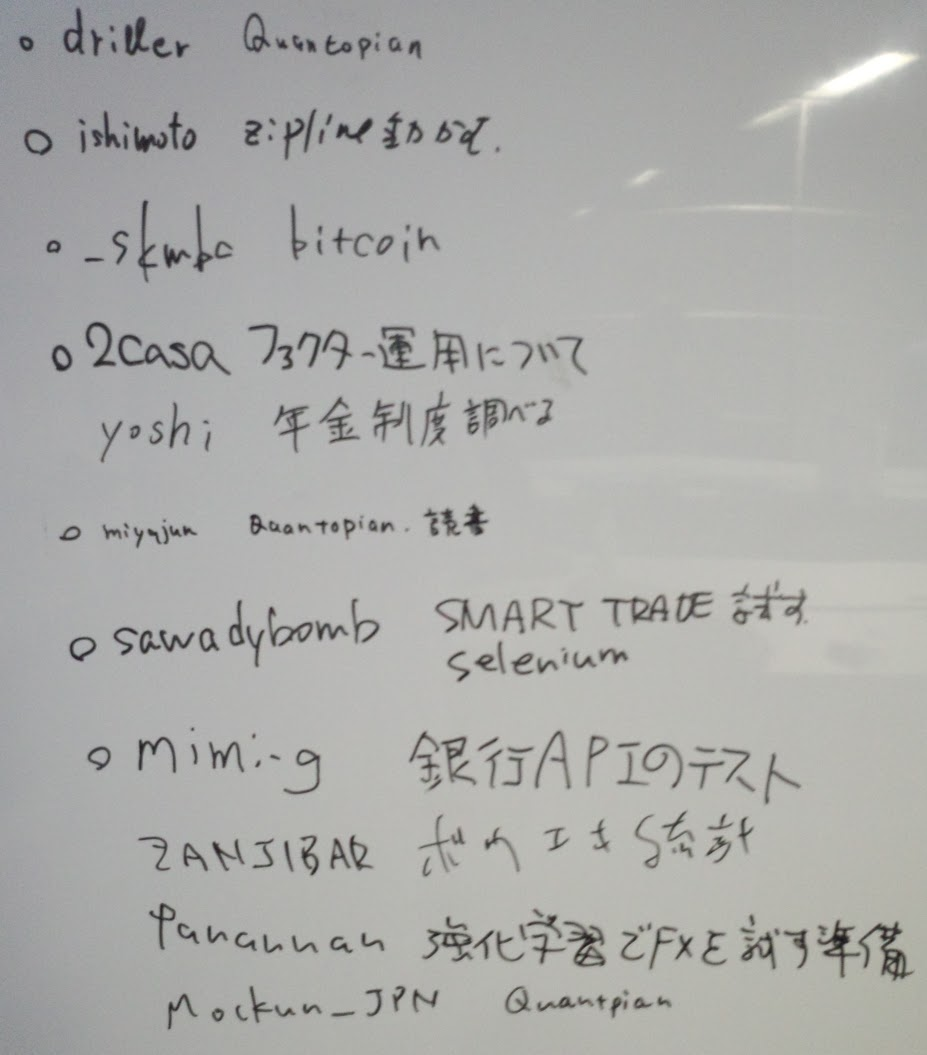 ○ driller Quantopian
○ ishimoto zipline動かす.
○ _skmbc bitcoin
○ 2casa ファクター運用について
yoshi 年金制度調べる
○ miyajun Quantopian. 読書
○ sawadybomb SMART TRADE 試す
selenium
○ mimi-g 銀行APIのテスト
ZANJIBAR ボウエキ統計
Panannan 強化学習でFXを試す準備
Mockun_JPN Quantpian